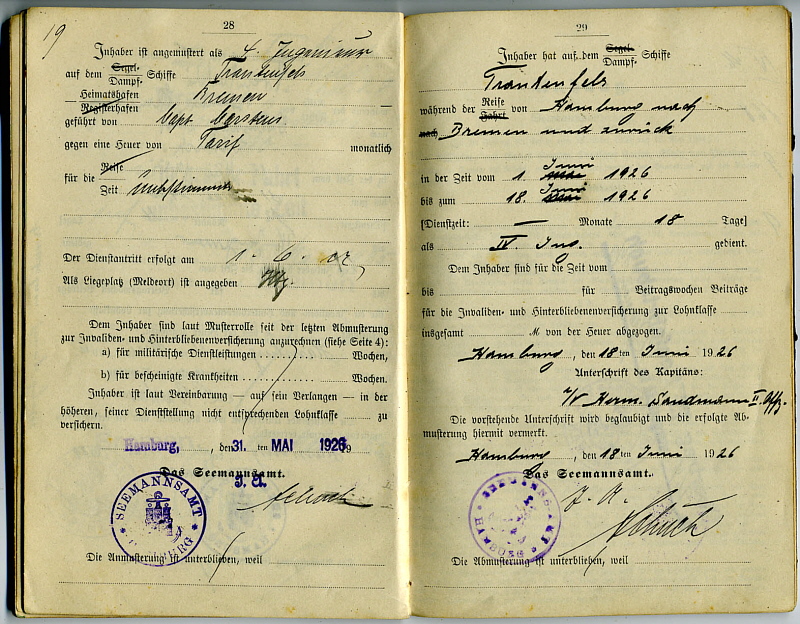 19
28
Inhaber ist angemustert als 4. Ingenieur
auf dem Segel- Dampf- Schiffe Trautenfels
Heimatshafen Bremen
Registerhafen
geführt von Capt. Carstens
gegen eine Heuer von Tarif monatlich
Reise
für die
Zeit Unbestimmt
Der Dienstantritt erfolgt am 1. 6.
Als Liegeplatz (Meldeort) ist angegeben Hbg.
Dem Inhaber sind laut Musterrolle seit der letzten Abmusterung
zur Invaliden- und Hinterbliebenenversicherung anzurechnen (siehe Seite 4):
a) für militärische Dienstleistungen Wochen,
b) für bescheinigte Krankheiten Wochen.
Inhaber ist laut Vereinbarung — auf sein Verlangen — in der
höheren, seiner Dienststellung nicht entsprechenden Lohnklasse zu
versichern.
Hamburg, den 31. ten MAI 1926
Das Seemannsamt.
J. A.
SEEMANNSAMT HAMBURG
Die Anmusterung ist unterblieben, weil
29
Inhaber hat auf dem Segel- Dampf- Schiffe
Trautenfels
während der Reise Fahrt von Hamburg nach
nach Bremen und zurück
in der Zeit vom 1. Juni 1926
bis zum 18. Juni 1926
[Dienstzeit: — Monate 18 Tage]
als IV. Ing. gedient.
Dem Inhaber sind für die Zeit vom
bis für Beitragswochen Beiträge
für die Invaliden- und Hinterbliebenenversicherung zur Lohnklasse
insgesamt M. von der Heuer abgezogen.
Hamburg, den 18 ten Juni 1926
Unterschrift des Kapitäns:
Herm. Sandmann II. Offz.
Die vorstehende Unterschrift wird beglaubigt und die erfolgte Ab-
musterung hiermit vermerkt.
Hamburg, den 18 ten Juni 1926
Das Seemannsamt.
J. A.
SEEMANNSAMT HAMBURG
Die Abmusterung ist unterblieben, weil